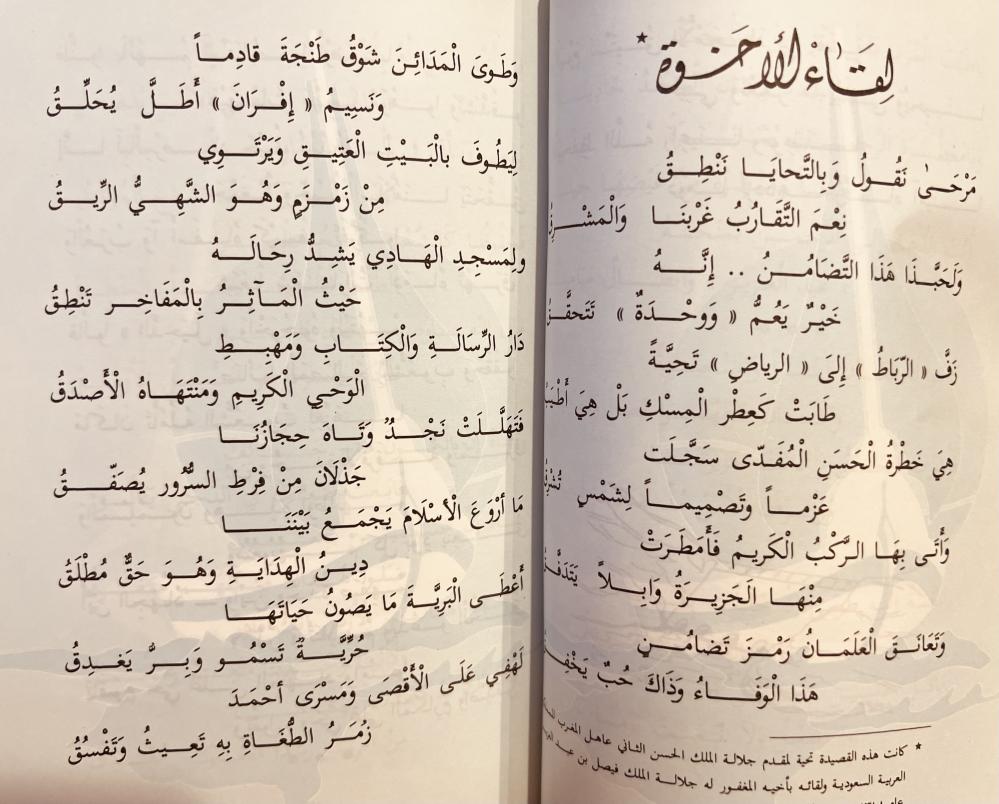 لِقَاءُ الأُخُوَّة *
مَرْحَىٰ نَقُولُ وَبِالتَّحايَا نَنْطِقُ
نِعْمَ التَّقَارُبُ غَرْبنَا وَالْمَشْرِقُ
وَلَحَبَّذَا هَذَا التَّضَامُنُ .. إِنَّهُ
خَيْرٌ يَعُمُّ « وَوحْدَةٌ » تَتَحقَّقُ
زَفَّ « الرّبَاطُ » إِلىَ « الرياضِ » تَحِيَّةً
طَابَتْ كَعِطْرِ الْمِسْكِ بَلْ هِيَ
هِيَ خَطْرةُ الْحَسَنِ الْمُفَدّى سَجَّلَت
عَزْماً وَتَصْمِيماً لِشَمْسٍ تُشْرِقُ
وَأَتى بِهَا الرَّكْبُ الْكَرِيمُ فَأَمطَرَتْ
مِنْهَا الْجَزِيرَةُ وَابِلاً يَتَدَفَّقُ
وَتَعَانَقَ الْعَلَمَانُ رَمْزَ تَضامُنٍ
هَذَا الْوَفَاءُ وَذَاكَ حُبٌ يَخْفِقُ
* كانت هذه القصيدة تحية لمقدم جلالة الملك الحسن الثاني عاهل المغرب
العربية السعودية ولقائه بأخيه المغفور له جلالة الملك فيصل بن عبد
وَطَوىَ الْمَدَائِنَ شَوْقُ طَنْجَةَ قادِماً
وَنَسِيمُ « إِفْرَانَ » أَطَلَّ يُحَلِّقُ
لِيَطُوفَ بالْبَيْتِ الْعَتِيقِ وَيَرْتَوِي
مِنْ زَمْزَمٍ وَهُوَ الشَّهِيُّ الرِّيقُ
ولِمَسْجِدِ الْهَادِي يَشِدُّ رِحَالَهُ
حَيْثُ الْمَآثِرُ بِالْمَفَاخِرِ تَنْطِقُ
دَارُ الرِّسَالَةِ وَالْكِتَابِ وَمَهْبِطِ
الْوَحْيِ الْكَرِيمِ وَمَنْتَهَاهُ الْأَصْدَقُ
فَتَهَلَّلَتْ نَجْدٌ وَتَاهَ حِجَازُنَا
جَذْلَانَ مِنْ فِرْطِ السُّرُور يُصَفّقُ
مَا أرْوَعَ الْأسْلَامَ يَجْمَعُ بَيْنَنَا
دِينُ الْهِدَايَةِ وَهُوَ حَقٌّ مُطْلَقُ
أَعْطَى الْبَرِيَّةَ مَا يَصُونُ حَيَاتَهَا
حُرِّيَّةٌ تَسْمُو وَبِرٌّ يَغدِقُ
لَهْفِي عَلَى الْأَقْصَى وَمَسْرَى أحْمَدَ
زُمَرُ الطُّغَاةِ بِهِ تَعِيثُ وَتَفْسُقُ